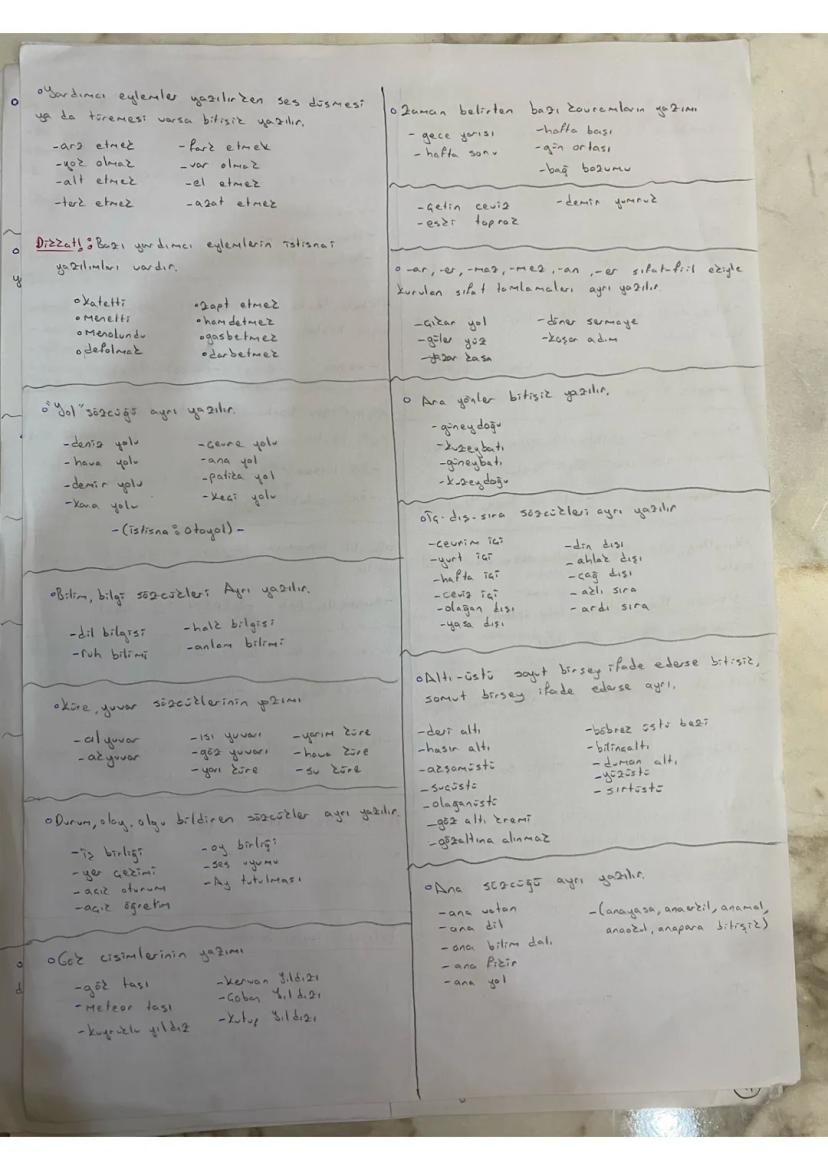 Yardımcı eylemler yazılırken ses düşmesi
ya da türemesi varsa bitişik yazılır.
-arz etmek -fark etmek
-yok olmak -var olmak
-alt etmek -el etmek
-terk etmek -azat etmek
Dikkat!: Bazı yardımcı eylemlerin istisnai
yazılımları vardır.
katetti zapt etmek
menetti hamdetmek
menolundu gasbetmek
defolmak darbetmek
"Yol" sözcüğü ayrı yazılır.
-deniz yolu -çevre yolu
-hava yolu -ana yol
-demir yolu -patika yol
-kara yolu -keçi yolu
-(istisna: otoyol)-
Bilim, bilgi sözcükleri Ayrı yazılır.
-dil bilgisi -halk bilgisi
-ruh bilimi -anlam bilimi
Küre, yuvar sözcüklerinin yazımı
-alyuvar -ısı yuvarı -yarım küre
-akyuvar -göz yuvarı -hava küre
-yarı küre -su küre
Durum, olay, olgu bildiren sözcükler ayrı yazılır.
-iş birliği -oy birliği
-yer çekimi -ses uyumu
-açık oturum -Ay tutulması
-açık öğretim
Gök cisimlerinin yazımı
-gök taşı -Kervan Yıldızı
-Meteor taşı -Çoban Yıldızı
-kuyruklu yıldız -Kutup Yıldızı
Zaman belirten bazı kavramların yazımı
-gece yarısı -hafta başı
-hafta sonu -gün ortası
-bağ bozumu
-çetin ceviz -demir yumruk
-eski toprak
-ar, -er, -maz, -mez, -an, -er sıfat-fiil ekiyle
kurulan sıfat tamlamaları ayrı yazılır.
-çıkar yol -döner sermaye
-güler yüz -koşar adım
-yazar kasa
Ana yönler bitişik yazılır.
-güneydoğu
-kuzeybatı
-güneybatı
-kuzeydoğu
İç-dış-sıra sözcükleri ayrı yazılır
-çevrim içi -din dışı
-yurt içi -ahlak dışı
-hafta içi -çağ dışı
-ceviz içi -aklı sıra
-olağan dışı -ardı sıra
-yasa dışı
Altı-üstü soyut birşey ifade ederse bitişik,
somut birşey ifade ederse ayrı.
-deri altı -böbrek üstü bezi
-hasır altı -bilinçaltı
-akşamüstü -duman altı
-suçüstü -yüzüstü
-olağanüstü -sırtüstü
-göz altı kremi
-gözaltına alınmak
Ana sözcüğü ayrı yazılır.
-ana vatan -(anayasa, anaerkil, anamal,
-ana dil anaokul, anapara bitişik)
-ana bilim dalı
-ana fikir
-ana yol